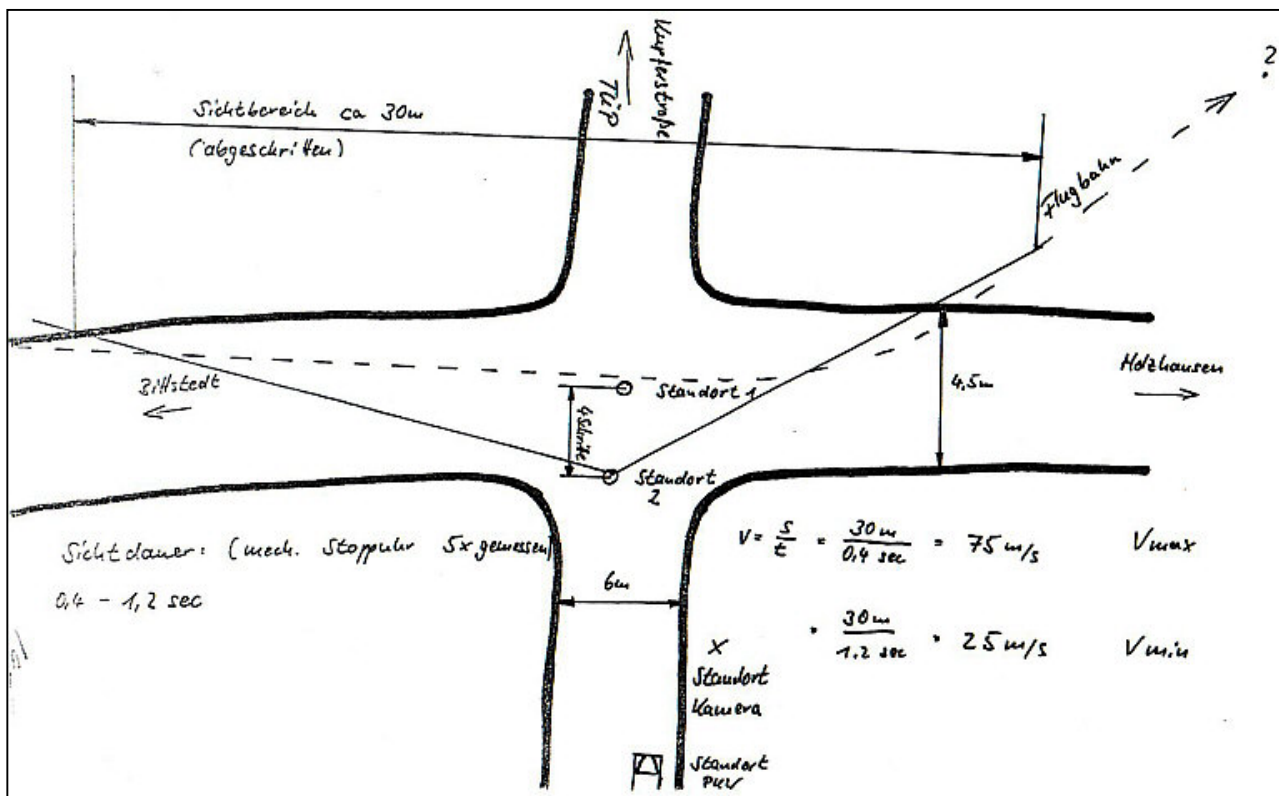 Sichtbereich ca 30m
(abgeschritten)
TÜP
Kupferstraße
Flugbahn
?
Bittstedt
Holzhausen
Standort 1
4 Schritte
4,5m
Standort
2
Sichtdauer: (mech. Stoppuhr 5x gemessen)
0,4 – 1,2 sec
6m
V = s/t = 30m/0,4 sec = 75 m/s Vmax
= 30m/1,2 sec = 25 m/s Vmin
x
Standort
Kamera
Standort
PKW